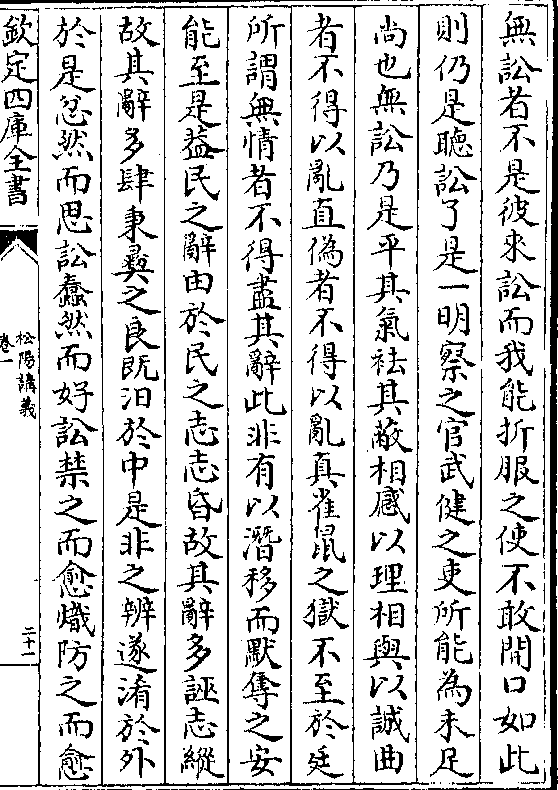 無訟者不是彼來訟而我能折服之使不敢開口如此
則仍是聽訟了是一明察之官武健之吏所能為未足
尚也無訟乃是平其氣祛其蔽相感以理相與以誠曲
者不得以亂直偽者不得以亂真雀鼠之獄不至於廷
所謂無情者不得盡其辭此非有以潛移而默奪之安
能至是葢民之辭由於民之志志昏故其辭多誣志縱
故其辭多肆秉彛之良既汩於中是非之辨遂淆於外
於是忿然而思訟蠢然而好訟禁之而愈熾防之而愈
欽定四庫全書
松陽講義
卷一
二十二